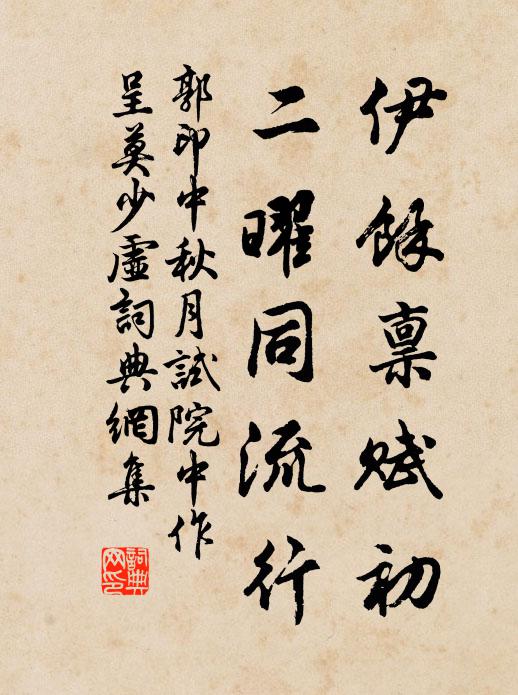 伊餘稟賦初
二曜同流行
郭印中秋月試院中作
呈莫少虛詞典網集
詞典网印